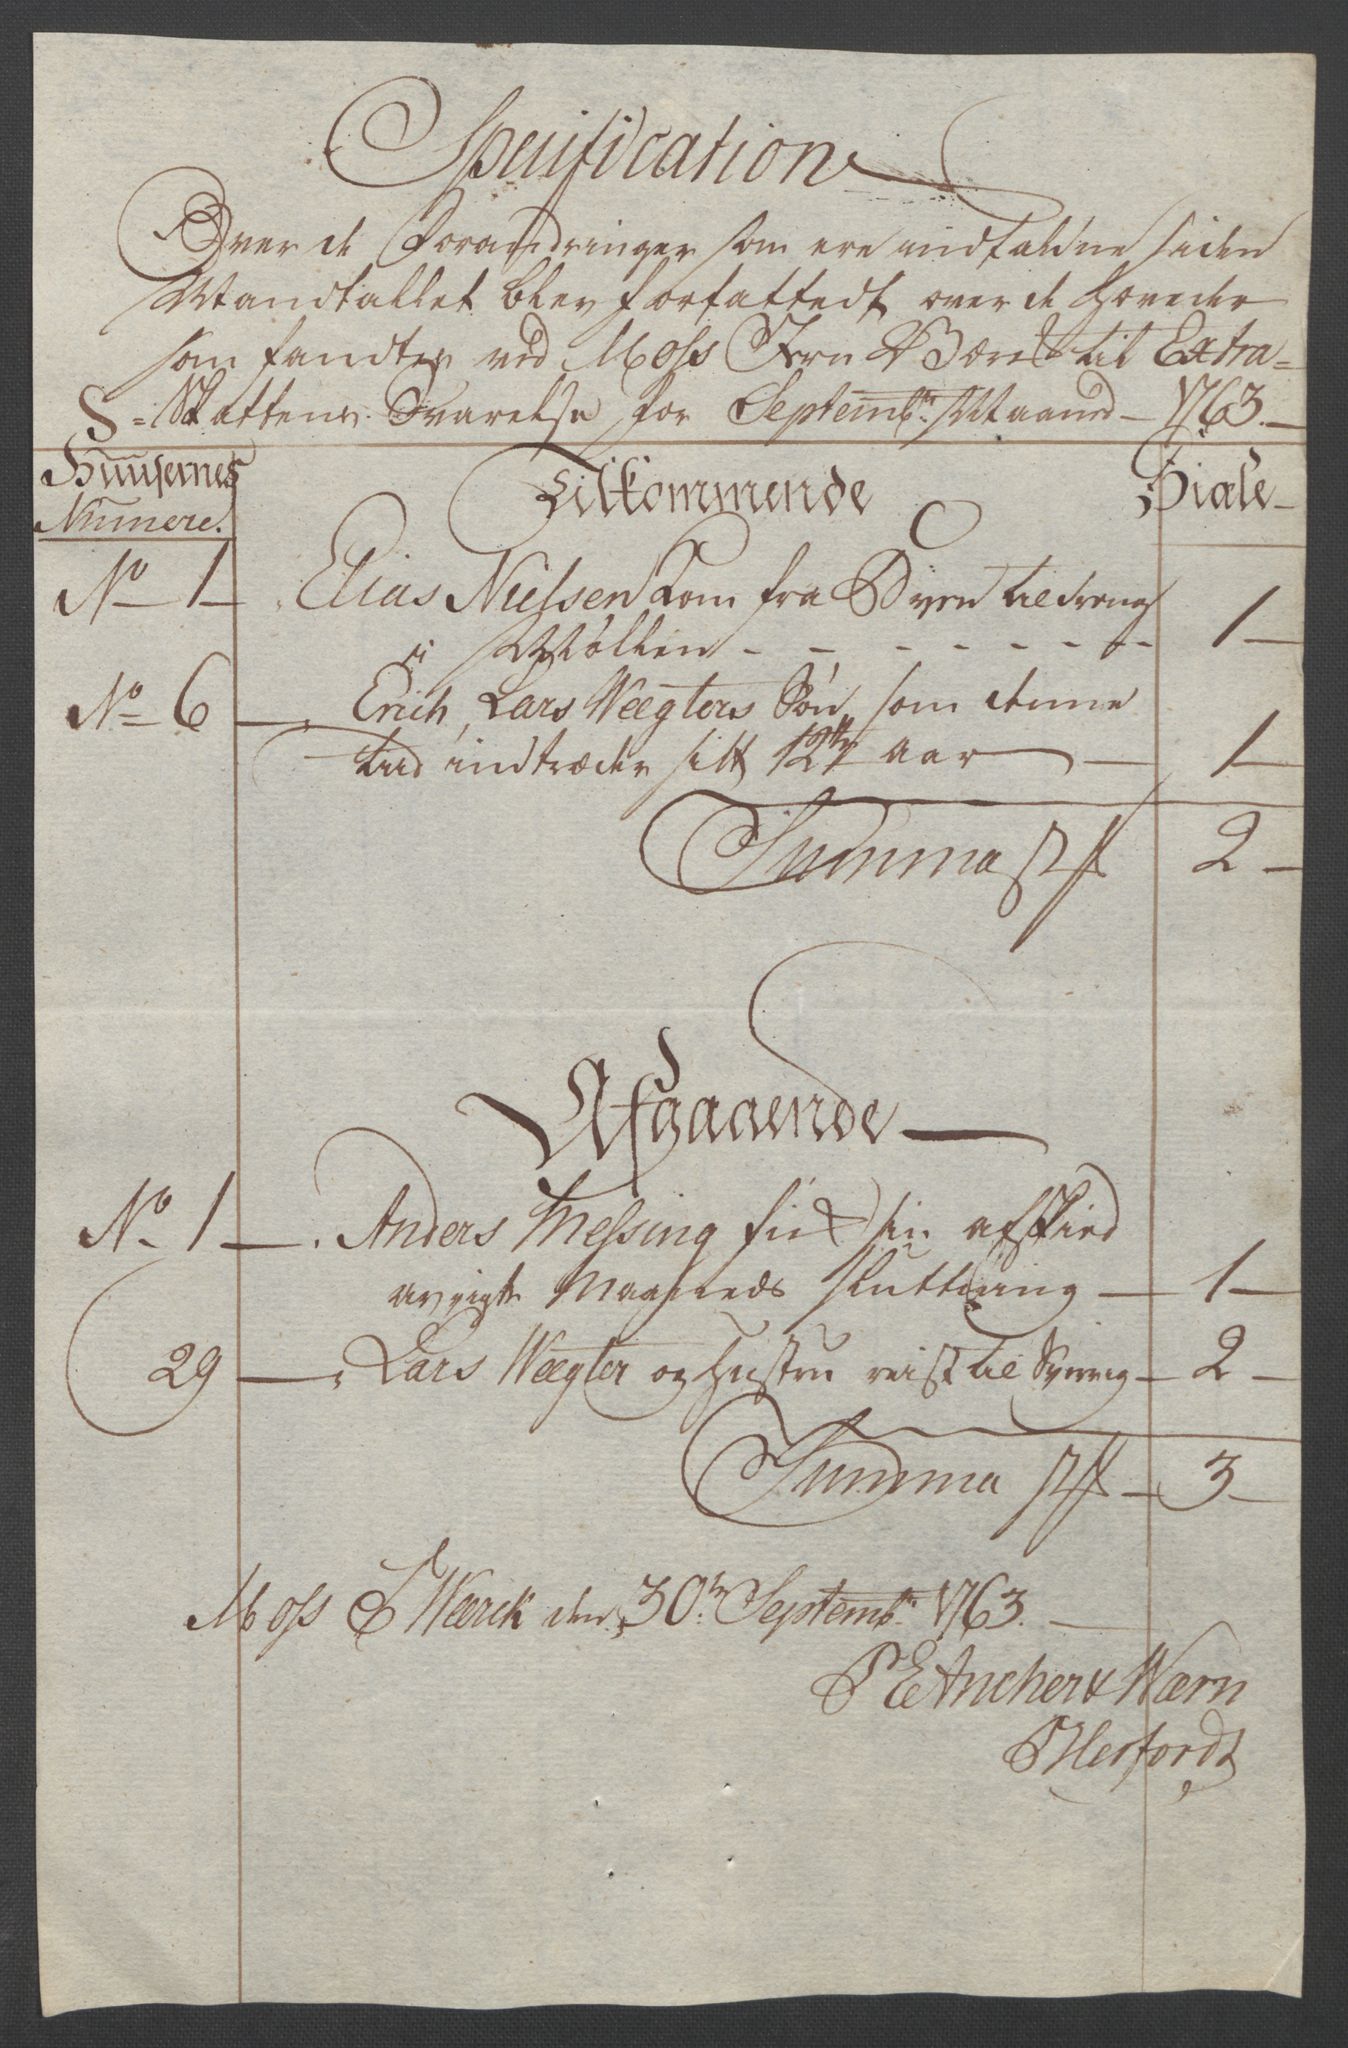 Specification
Over de Forandringer som ere indfaldne siden
Mandtallet blev forfattedt over de Hoveder
som fandtes ved Moss Jern Værck til Extra-
Skattens Svarelse for Septembr. Maaned 1763.
Huusernes Numere.
Tilkommende
Siæle
No 1 Elias Nielsen kom fra Byen til dreng
i Møllen - - - - - - - 1
No 6 Erich, Lars Wægters Søn, som denne
tiid indtræder sitt 12te aar 1
Summa 2
Afgaaende
No. 1 Anders Messing fick sin afskied
avvigte Maaneds slutning 1
29 Lars Wægter og Hustru reist til Sverrig 2
Summa 3
Moss J Wærck den 30te Septembr. 1763.
P E Ancher & Wærn
P Herfordt